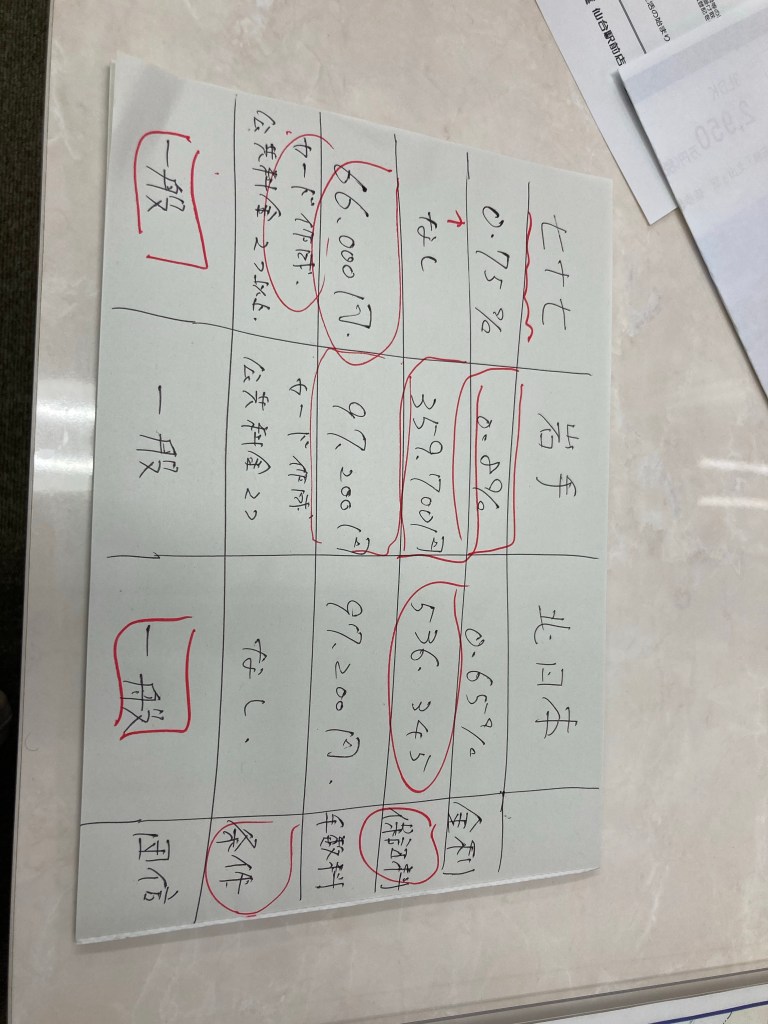 七十七 岩手 北日本
0.75% 0.8% 0.65% 金利
なし 359.700円 536.345 保証料
66.000円. 97.200円 97.200円. 手数料
カード併用. カード併用 なし. 条件
公共料金2つ以上. 公共料金2つ
一般 一般 一般 団信
の始まり
仙台駅前店
2,950